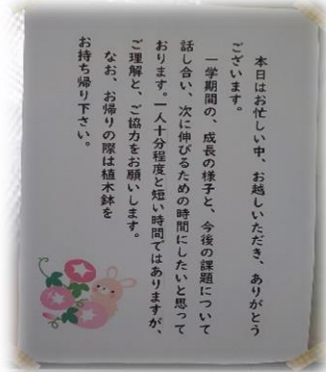 本日はお忙しい中、お越しいただき、ありがとう
ございます。
一学期間の、成長の様子と、今後の課題について
話し合い、次に伸びるための時間にしたいと思って
おります。一人十分程度と短い時間ではありますが、
ご理解と、ご協力をお願いします。
なお、お帰りの際は植木鉢を
お持ち帰り下さい。